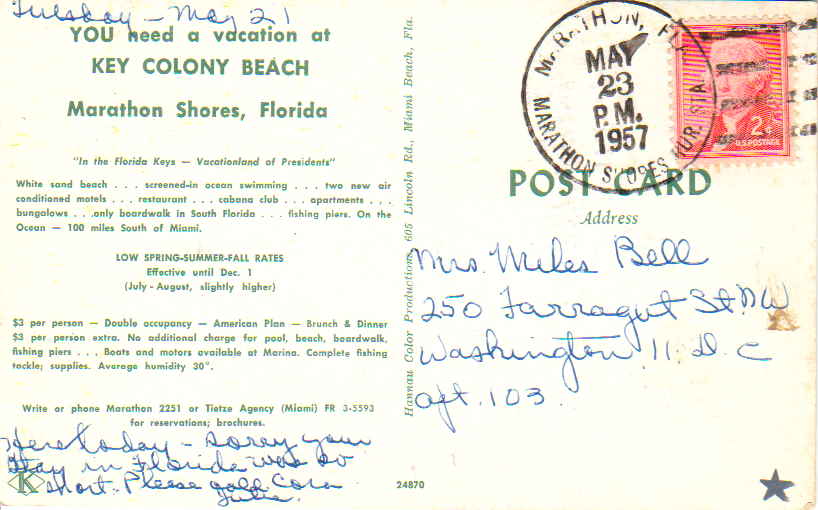 Tuesday - May 21
YOU need a vacation at
KEY COLONY BEACH
Marathon Shores, Florida
"In the Florida Keys — Vacationland of Presidents"
White sand beach . . . screened-in ocean swimming . . . two new air
conditioned motels . . . restaurant . . . cabana club . . . apartments . . .
bungalows . . .only boardwalk in South Florida . . . fishing piers. On the
Ocean — 100 miles South of Miami.
LOW SPRING-SUMMER-FALL RATES
Effective until Dec. 1
(July - August, slightly higher)
$3 per person — Double occupancy — American Plan — Brunch & Dinner
$3 per person extra. No additional charge for pool, beach, boardwalk,
fishing piers . . . Boats and motors available at Marina. Complete fishing
tackle; supplies. Average humidity 30".
Write or phone Marathon 2251 or Tietze Agency (Miami) FR 3-5593
for reservations; brochures.
Here today - sorry your
stay in Florida was so
short. Please call Cora
Julie.
K
24870
Hannau Color Productions, 605 Lincoln Rd., Miami Beach, Fla.
MARATHON, FLA.
MAY
23
P.M.
1957
MARATHON SHORES RUR. STA.
2¢
U.S. POSTAGE
POST CARD
Address
Mrs. Miles Bell
250 Farragut St. NW
Washington 11. D. C
apt. 103.